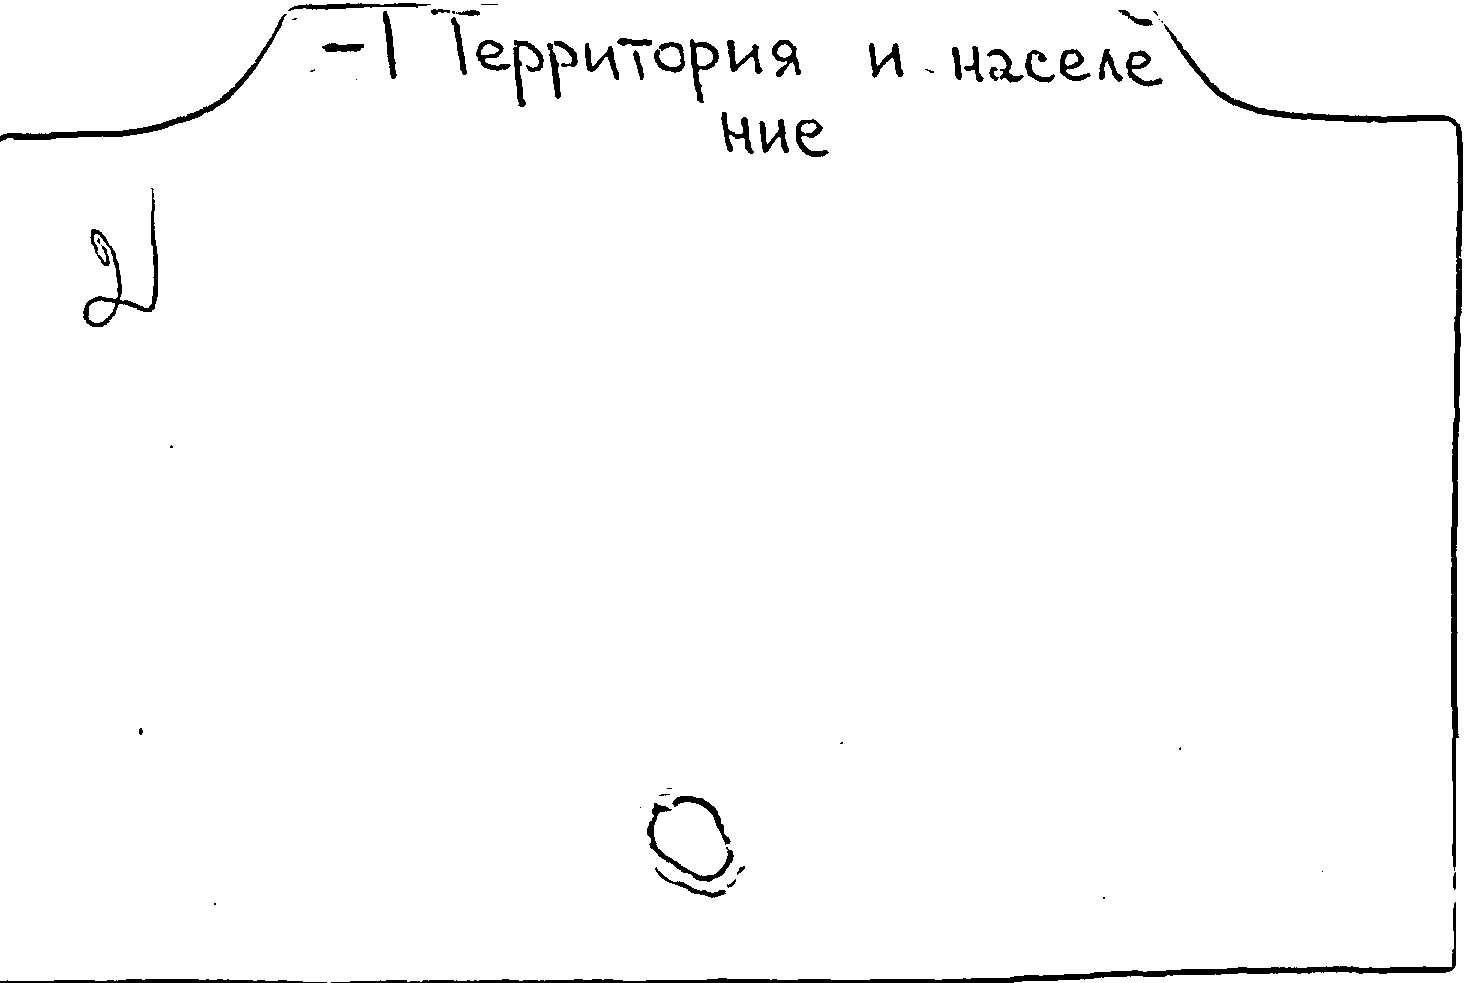 -1 Территория и населе
ние
21